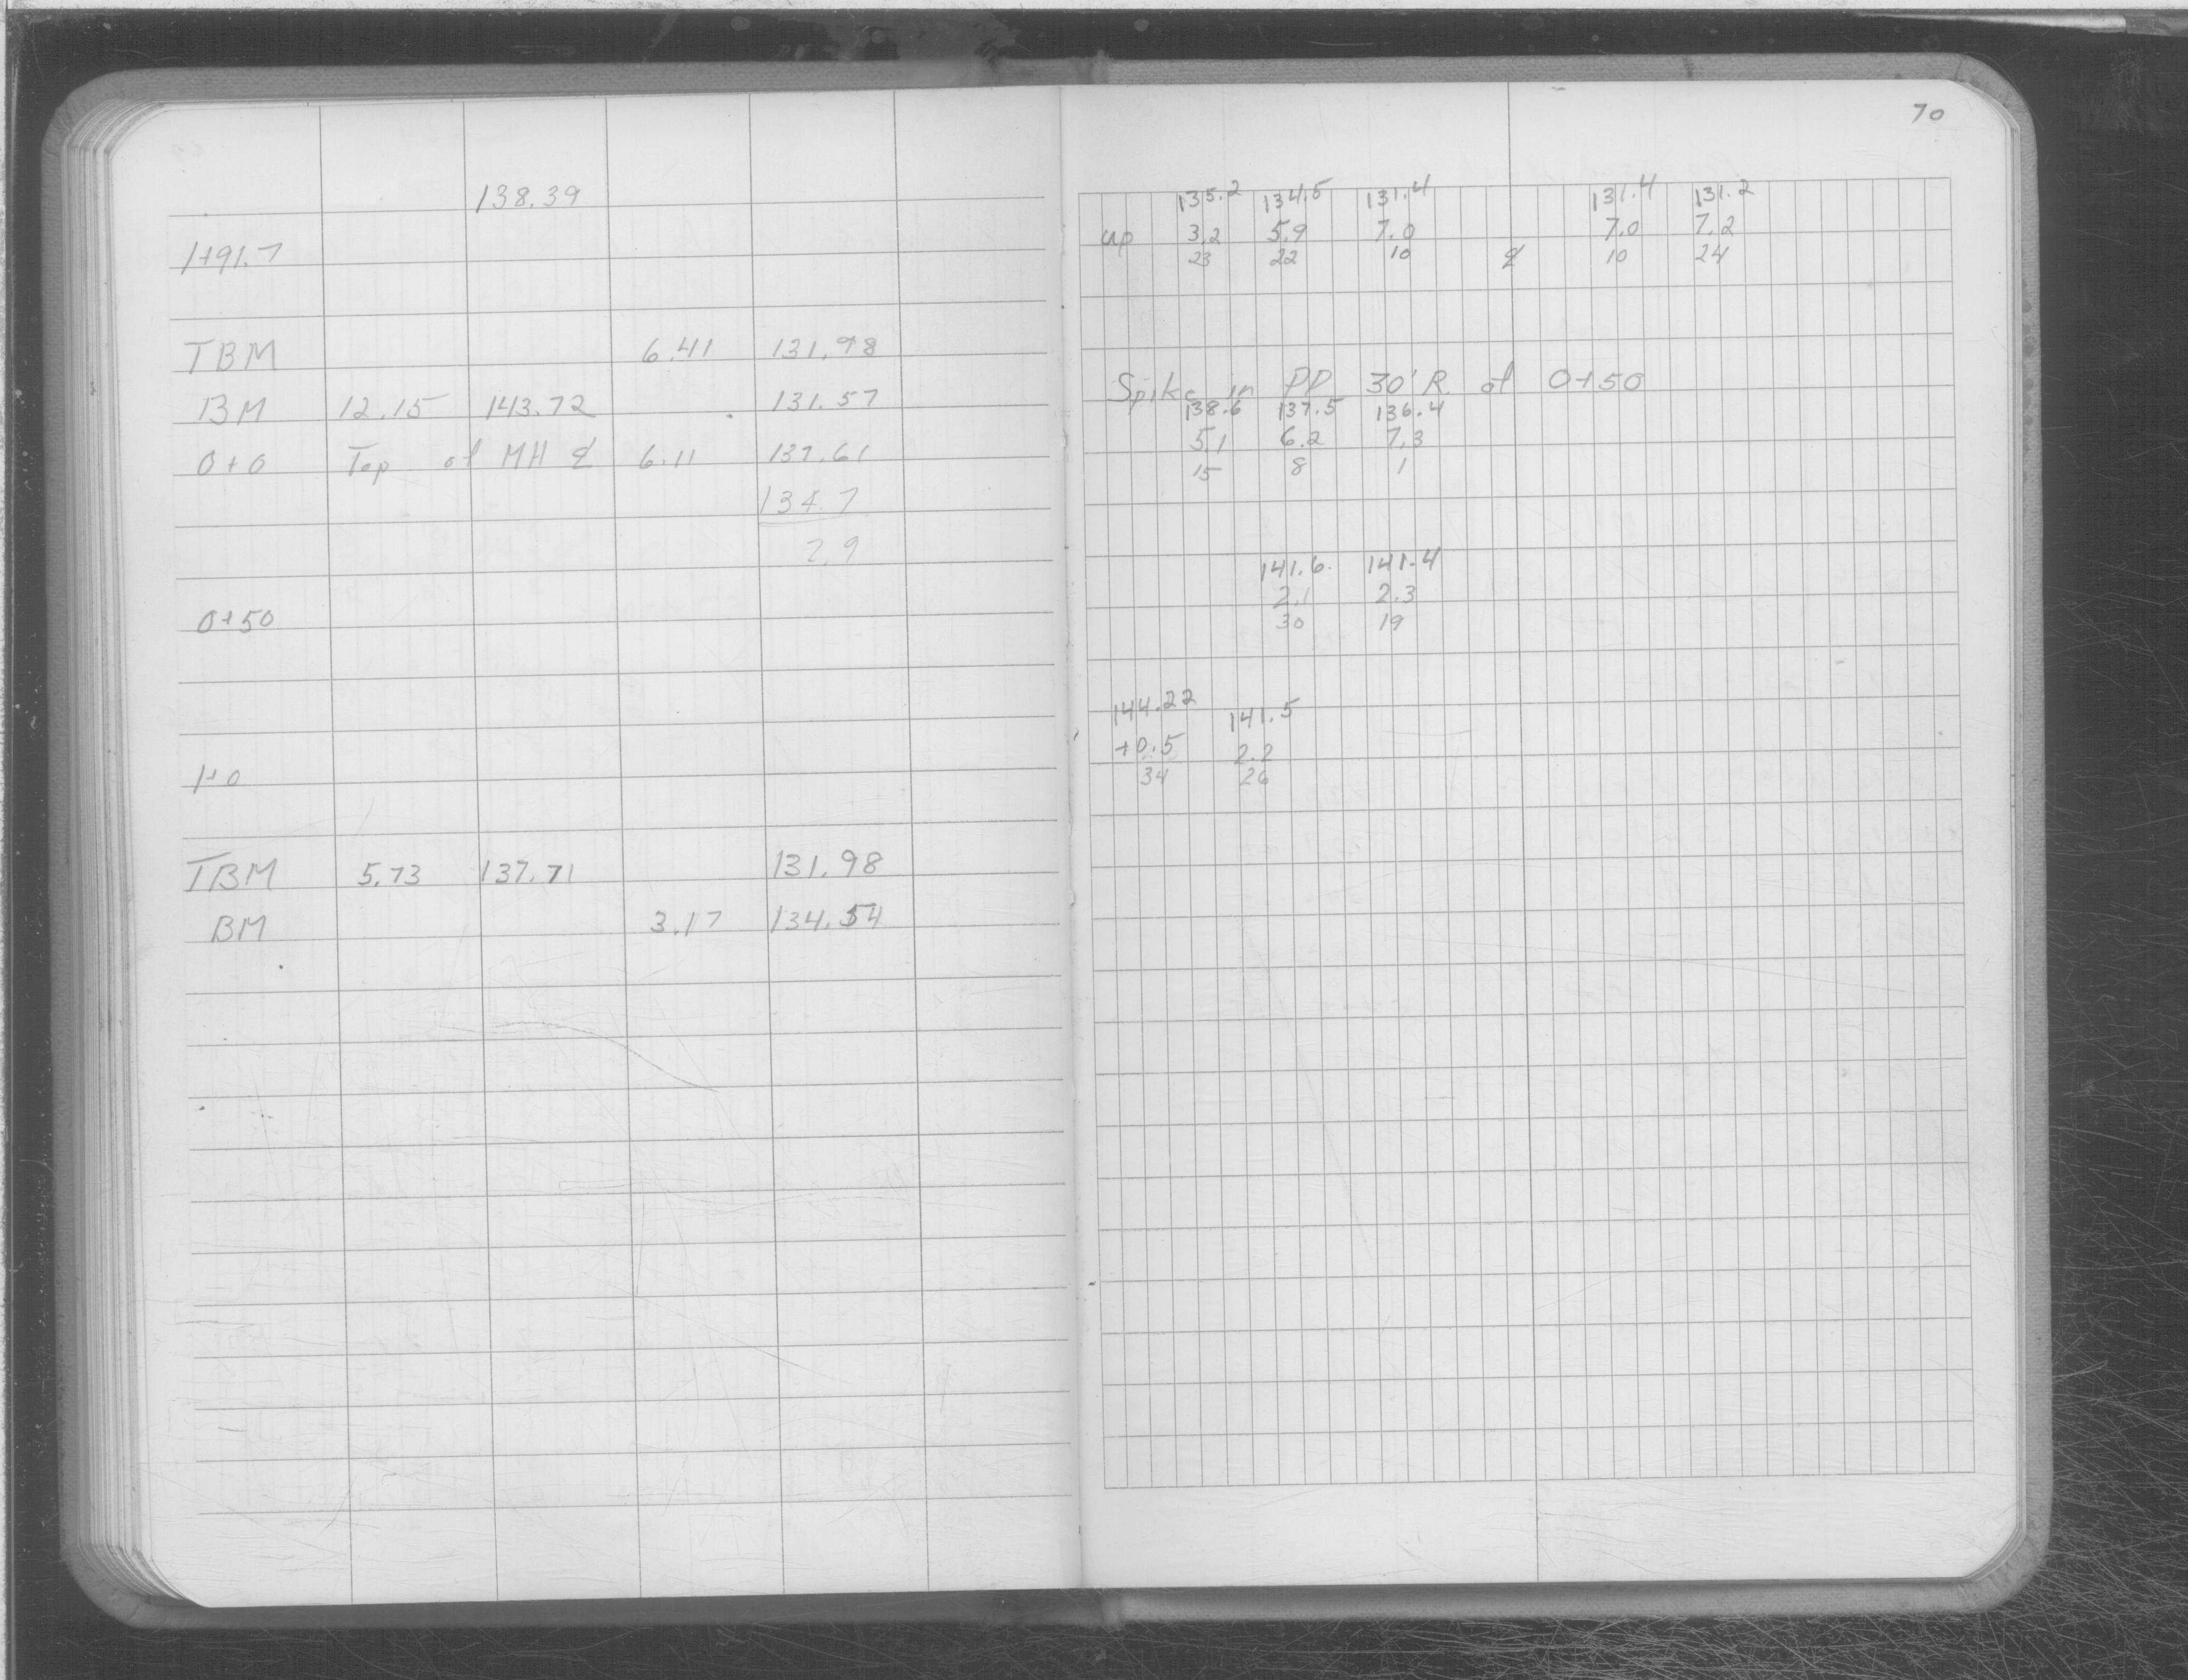 138.39
1+91.7
TBM 6.41 131.98
BM 12.15 143.72 131.57
0+0 Top of MH ℄ 6.11 137.61
134.7
2.9
0+50
1+0
TBM 5.73 137.71 131.98
BM 3.17 134.54
70
135.2 134.5 131.4 131.4 131.2
up 3.2 5.9 7.0 7.0 7.2
23 22 10 ℄ 10 24
Spike in PP 30' R of 0+50
138.6 137.5 136.4
5.1 6.2 7.3
15 8 1
141.6 141.4
2.1 2.3
30 19
144.22 141.5
+0.5 2.2
34 26